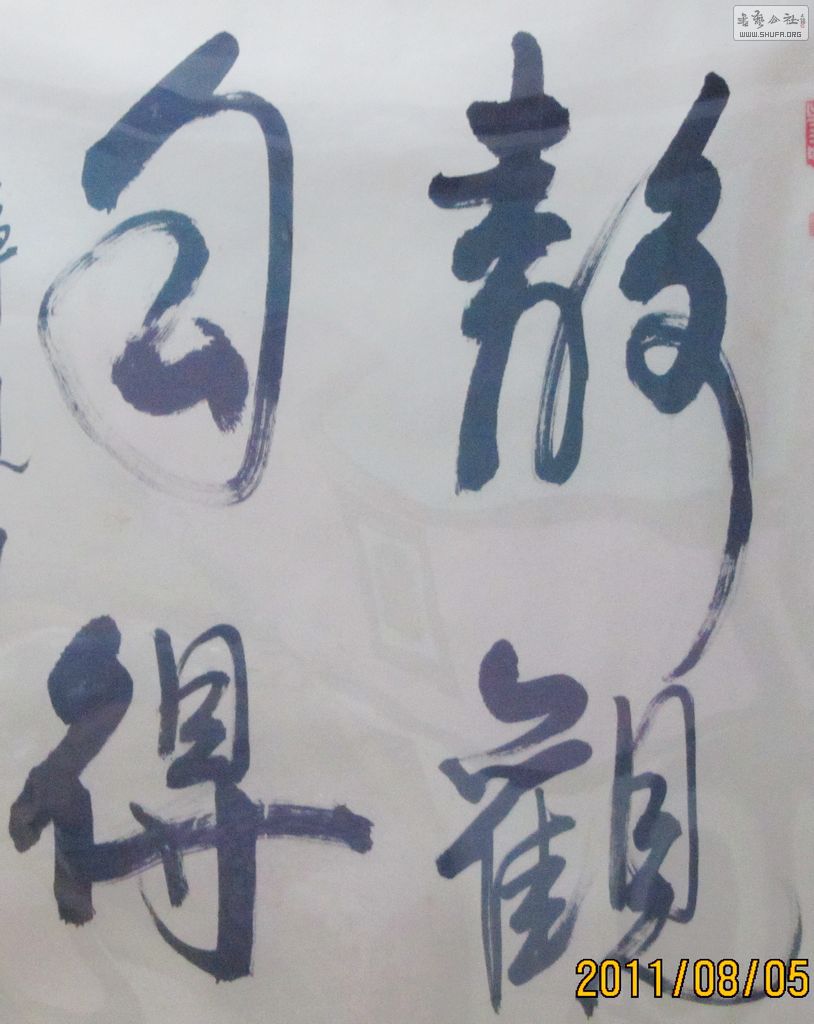 静觀
自得
書藝公社
WWW.SHUFA.ORG
2011/08/05